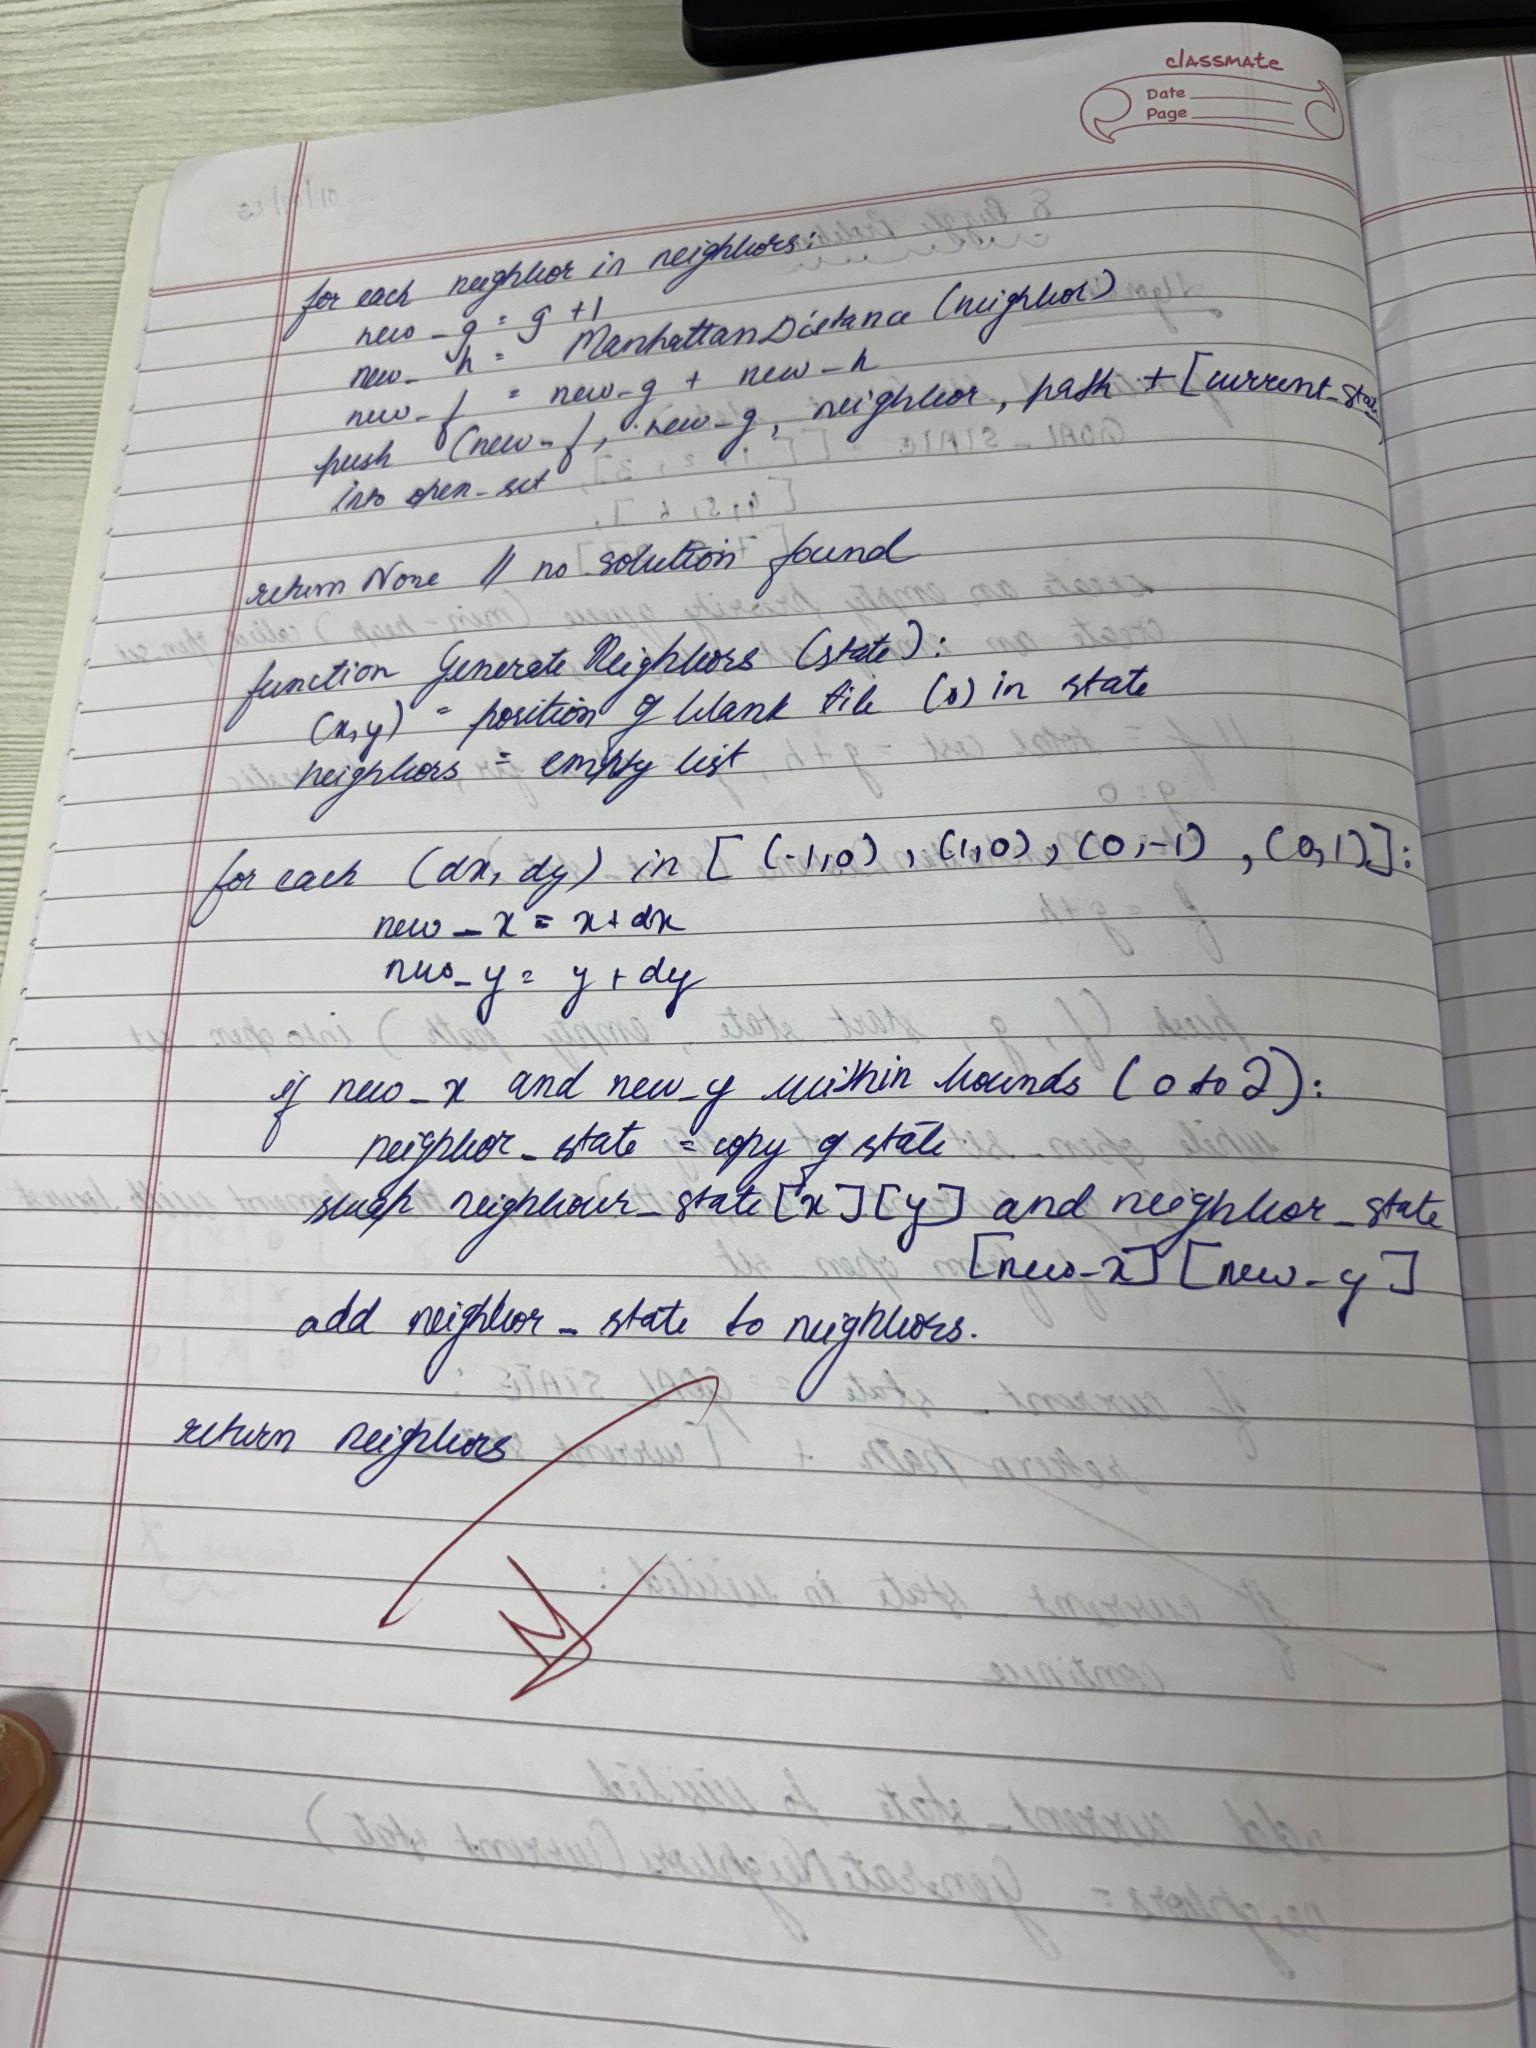 classmate
Date
Page
for each neighbor in neighbors:
new_g = g +1
new_h = ManhattanDistance (neighbor)
new_f = new_g + new_h
push (new_f, new_g, neighbor, path + [current_state
into open_set
return None // no solution found
function Generate Neighbors (state):
(x,y) = position of blank tile (0) in state
neighbors = empty list
for each (dx, dy) in [ (-1,0) , (1,0) , (0,-1) , (0,1)]:
new_x = x+dx
new_y = y + dy
if new_x and new_y within bounds (0 to 2):
neighbor_state = copy of state
swap neighbour_state [x][y] and neighbor_state
[new_x] [new_y]
add neighbor_state to neighbors.
return neighbors